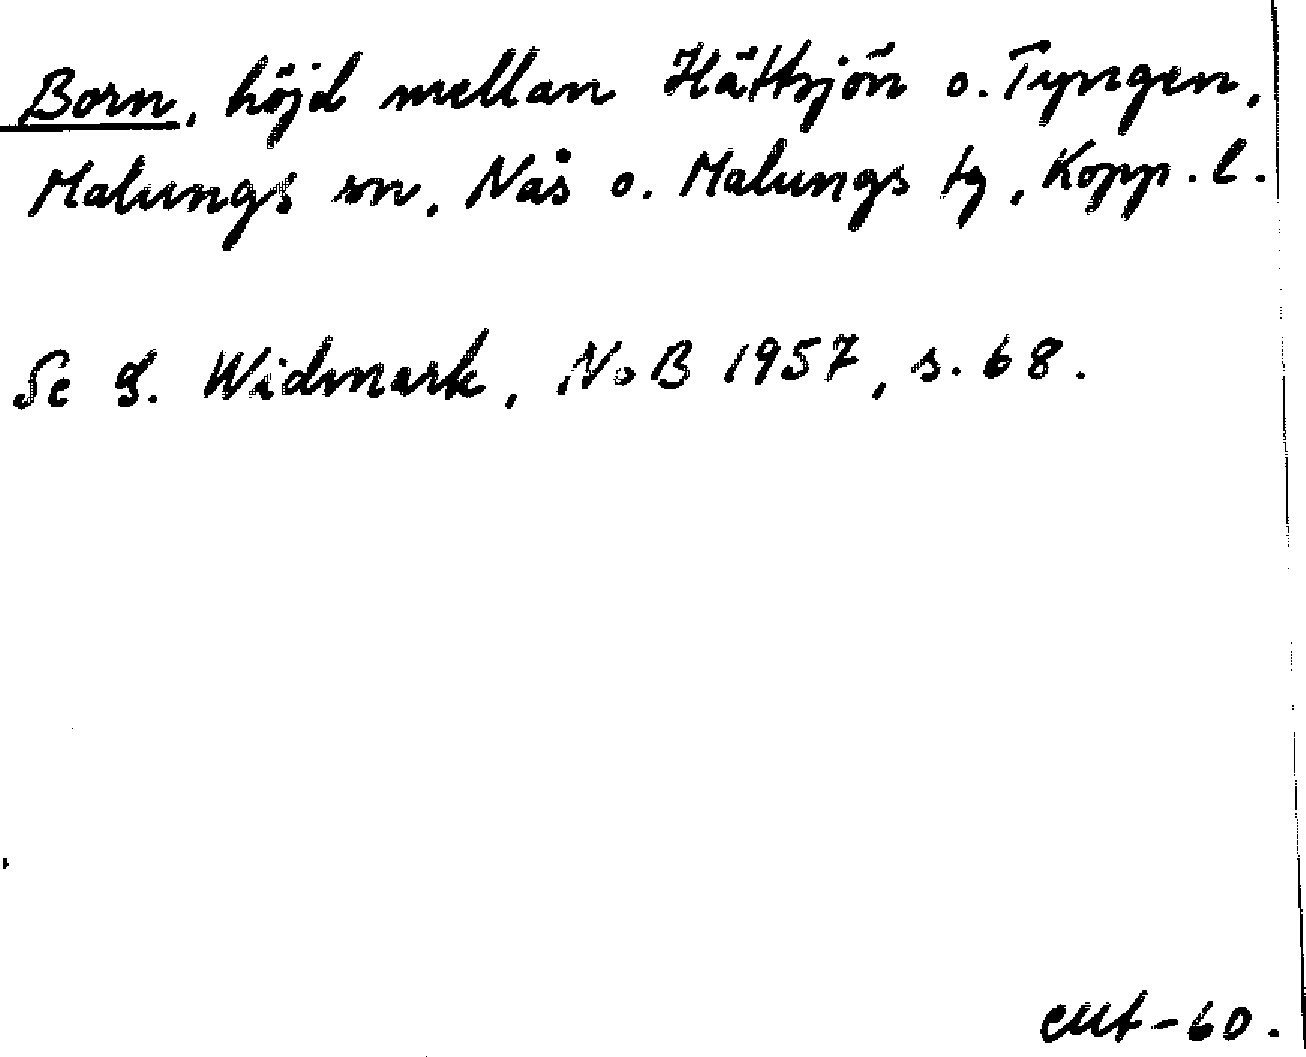 Born, höjd mellan Hättsjön o. Tyngen,
Malungs sn, Nås o. Malungs tg, Kopp. l.
Se G. Widmark, NoB 1957, s. 68.
-60.